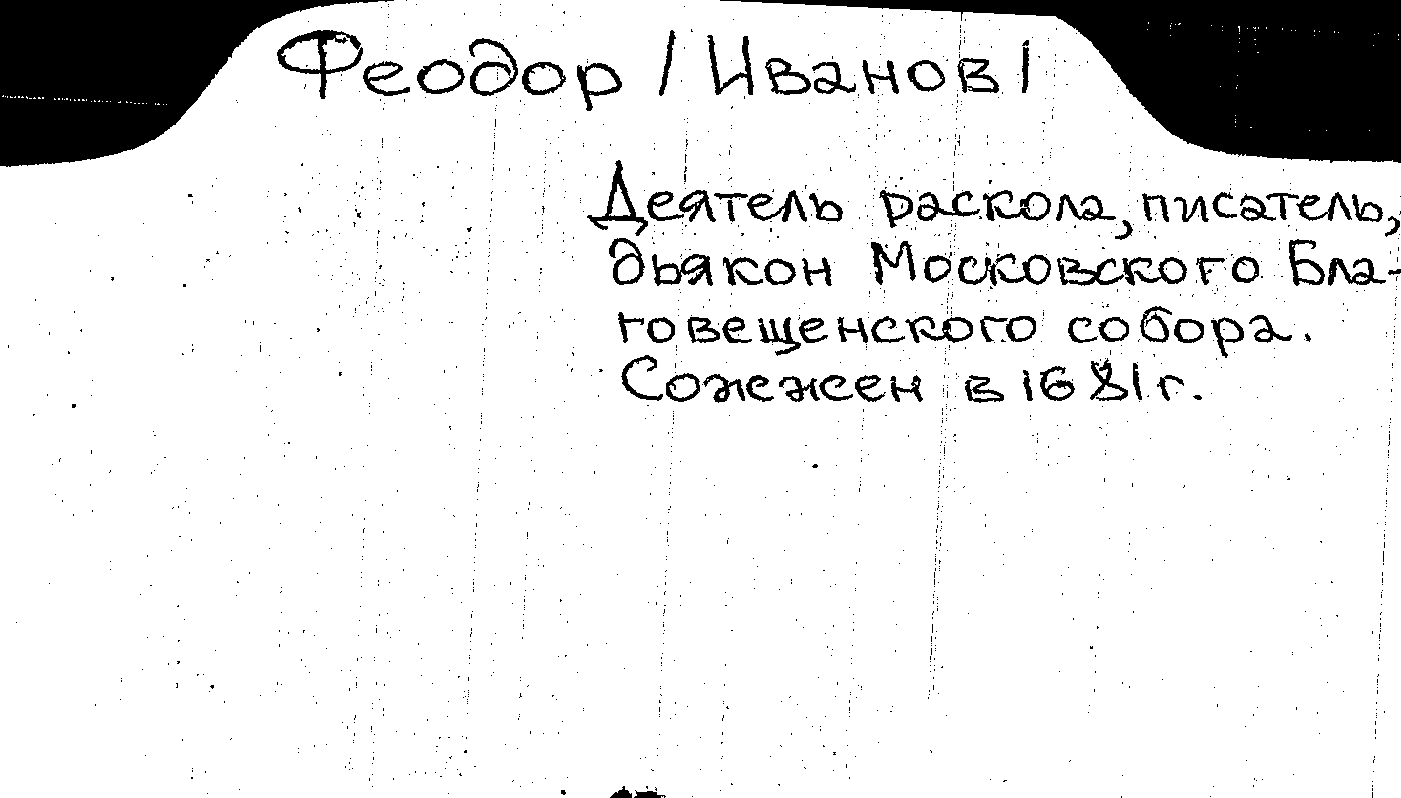 Феодор /Иванов/
Деятель раскола, писатель,
дьякон Московского Бла-
говещенского собора.
Сожжен в 1681 г.